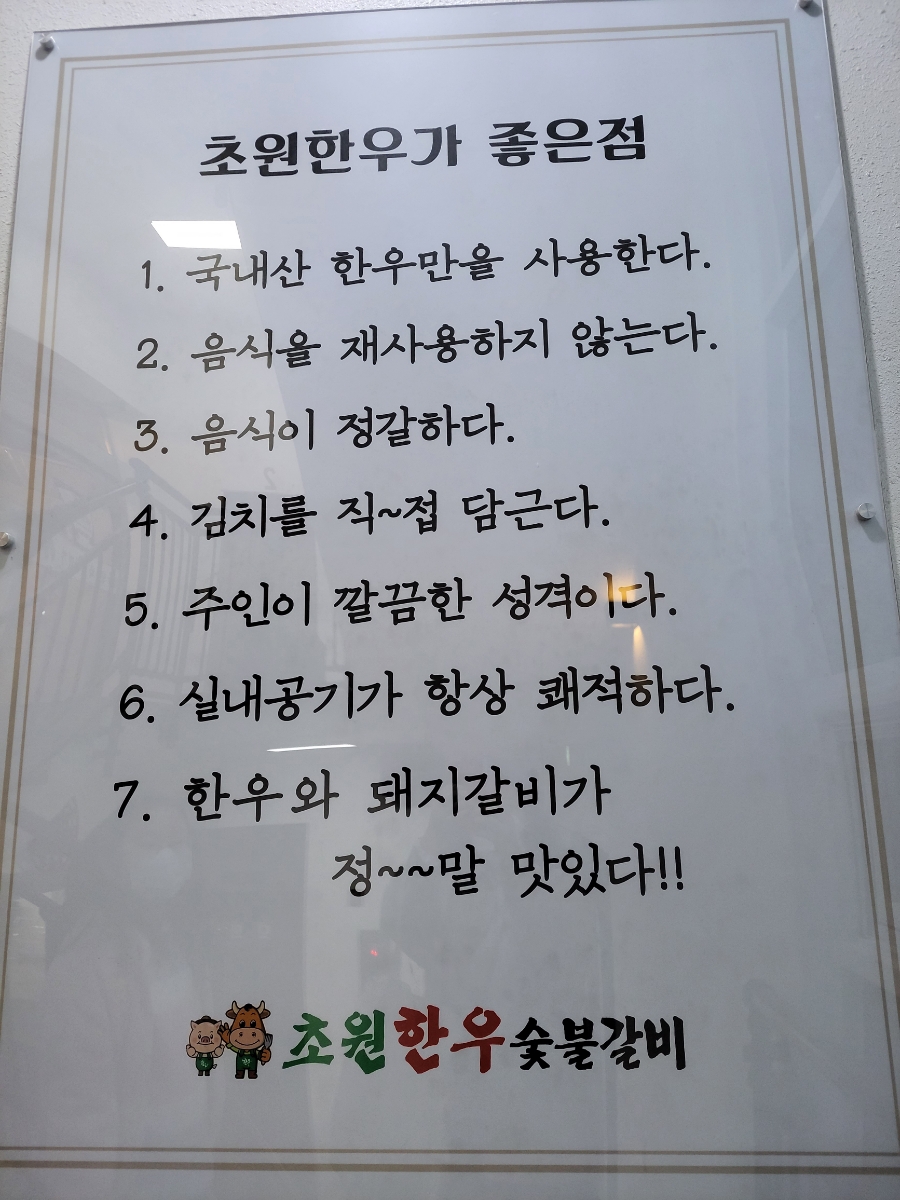 초원한우가 좋은점
1. 국내산 한우만을 사용한다.
2. 음식을 재사용하지 않는다.
3. 음식이 정갈하다.
4. 김치를 직~접 담근다.
5. 주인이 깔끔한 성격이다.
6. 실내공기가 항상 쾌적하다.
7. 한우와 돼지갈비가
정~~말 맛있다!!
초원한우숯불갈비